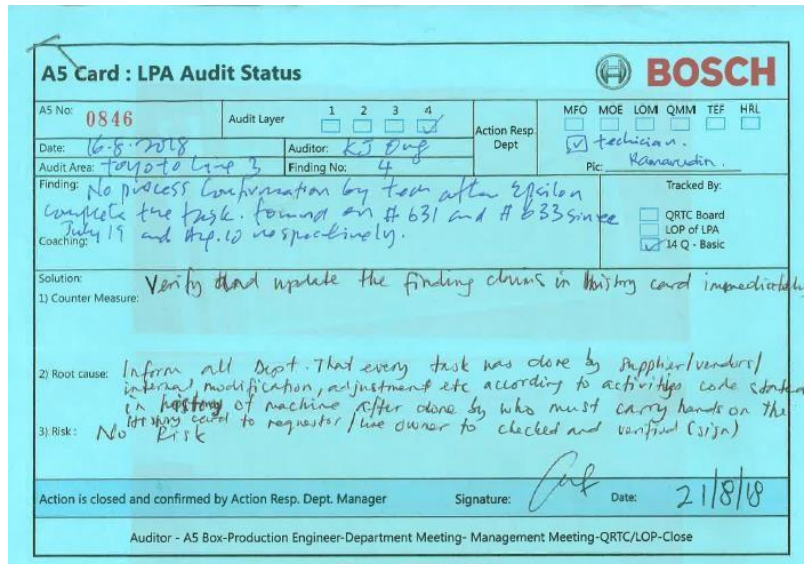 A5 Card : LPA Audit Status
BOSCH
A5 No: 0846
Audit Layer 1 2 3 4
Action Resp. Dept
MFO MOE LOM QMM TEF HRL
Date: 16-8-2018
Auditor: KJ Ong
techician.
Audit Area: Toyoto Line 3
Finding No: 4
Pic: Kamarudin.
Finding: No process Confirmation by tech after Epsilon
complete the task. found on # 631 and # 633 since
July 19 and Aug.10 respectively.
Coaching:
Tracked By:
QRTC Board
LOP of LPA
14 Q - Basic
Solution:
1) Counter Measure: Verify and update the finding in history card immediately
2) Root cause: Inform all Dept. That every task was done by supplier/vendors/
internal, modification, adjustment etc according to activities code stated
in history of machine after done by who must carry hands on the
history card to requestor / line owner to checked and verified (sign)
3) Risk : No Risk
Action is closed and confirmed by Action Resp. Dept. Manager
Signature:
Date: 21/8/18
Auditor - A5 Box-Production Engineer-Department Meeting- Management Meeting-QRTC/LOP-Close